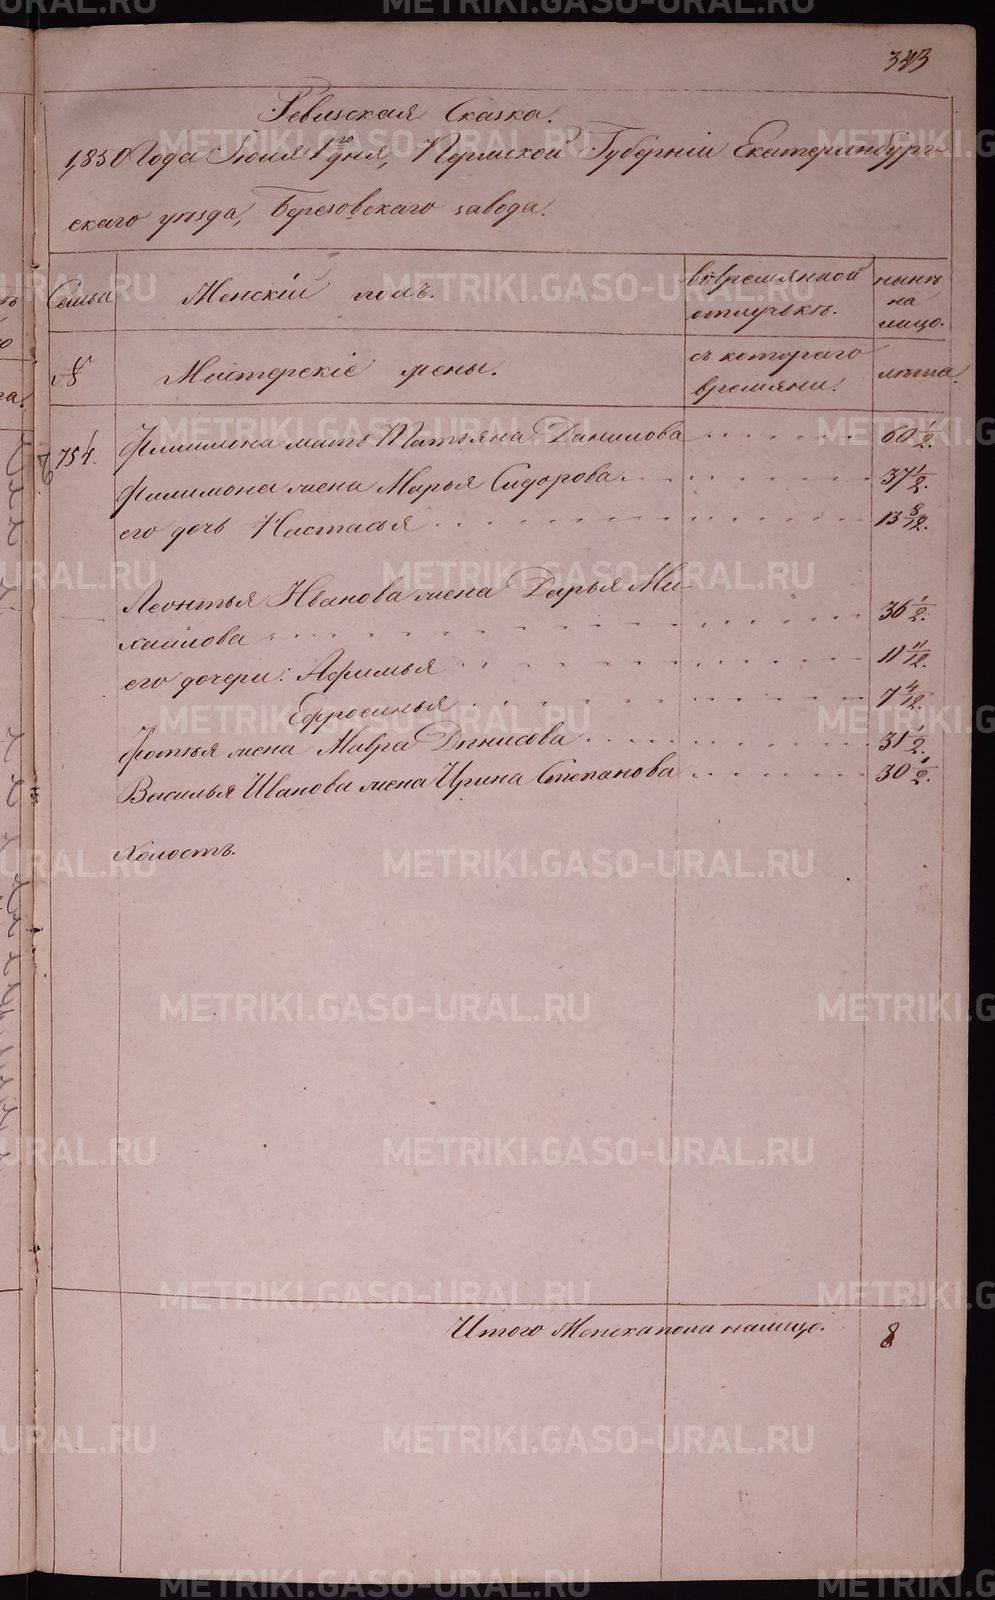 343
Ревизская Сказка.
1,850 Года Iюля 1го дня, Пермской Губернiи Екатеринбург-
скаго уѣзда, Березовскаго завода.
Семьи
Женскiй полъ.
во времянной отлучькѣ.
нынѣ на лицо.
№
Мастерскiе жены.
съ котораго времяни.
лѣта.
754.
Филимона мать Татьяна Данилова 60 1/2.
Филимона жена Марья Сидорова 37 1/2.
его дочь Настасья 13 8/12.
Леонтья Иванова жена Дарья Ми-
хаилова 36 1/2.
его дочери: Афимья 11 11/12.
Ефросинья 7 4/12.
Фотья жена Мавра Динисова 31 1/2.
Василья Иванова жена Ирина Степанова 30 1/2.
Холостъ.
Итого Женска пола на лицо. 8
METRIKI.GASO-URAL.RU